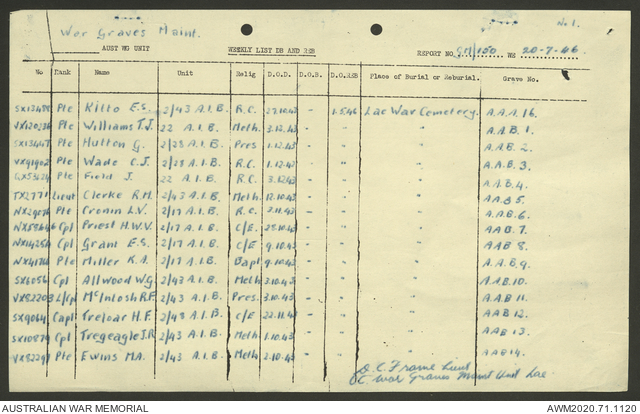 War Graves Maint. No. 1.
AUST WG UNIT WEEKLY LIST DB AND REB REPORT NO. GM/150 WE 20-7-46
No Rank Name Unit Relig D.O.D. D.O.B. D.O.REB Place of Burial or Reburial. Grave No.
SX13488 Pte Kitto E.S. 2/43 A.I.B. R.C. 27.10.43 - 1.5.46 Lae War Cemetery. A.A.A. 16.
Pte Williams T.J. 22 A.I.B. Meth. 3.12.43 - " " A.A.B. 1.
SX13447 Pte Hutton G. 2/28 A.I.B. Pres 1.12.43 - " " A.A.B. 2.
VX91902 Pte Wade C.J. 2/28 A.I.B. R.C. 1.12.43 - " " A.A.B. 3.
Pte Field J. 22 A.I.B. R.C. 3.12.43 - " " A.A.B. 4.
TX2771 Lieut Clerke R.M. 2/43 A.I.B. Meth. 12.10.43 - " " A.A.B 5.
Pte Cronin L.V. 2/17 A.I.B. R.C. 2.11.43 - " " A.A.B. 6.
Cpl Priest H.W.V. 2/17 A.I.B. C/E. 25.10.43 - " " AAB. 7.
NX14254 Cpl Grant E.S. 2/17 A.I.B. C/E 9.10.43 - " " AAB 8.
Pte Miller K.A. 2/17 A.I.B. Bapt 9.10.43 - " " A.A.B. 9.
SX6056 Cpl Allwood W.G. 2/43 A.I.B. Meth 3.10.43 - " " A.A.B. 10.
VX82203 L/Cpl McIntosh R.F. 2/43 A.I.B. Pres. 3.10.43 - " " A.A.B. 11.
SX9064 Capt Treloar H.F. 2/48 A.I.B. C/E 22.11.43 - " " AAB 12.
SX10879 Cpl Tregeagle J.R. 2/43 A.I.B. Meth. 1.10.43 - " " AAB 13.
VX82291 Pte Ewins M.A. 2/43 A.I.B. Meth. 2.10.43 - " " AAB 14.
D.C. Frame Lieut
OC War Graves Maint Unit Lae.
AUSTRALIAN WAR MEMORIAL AWM2020.71.1120